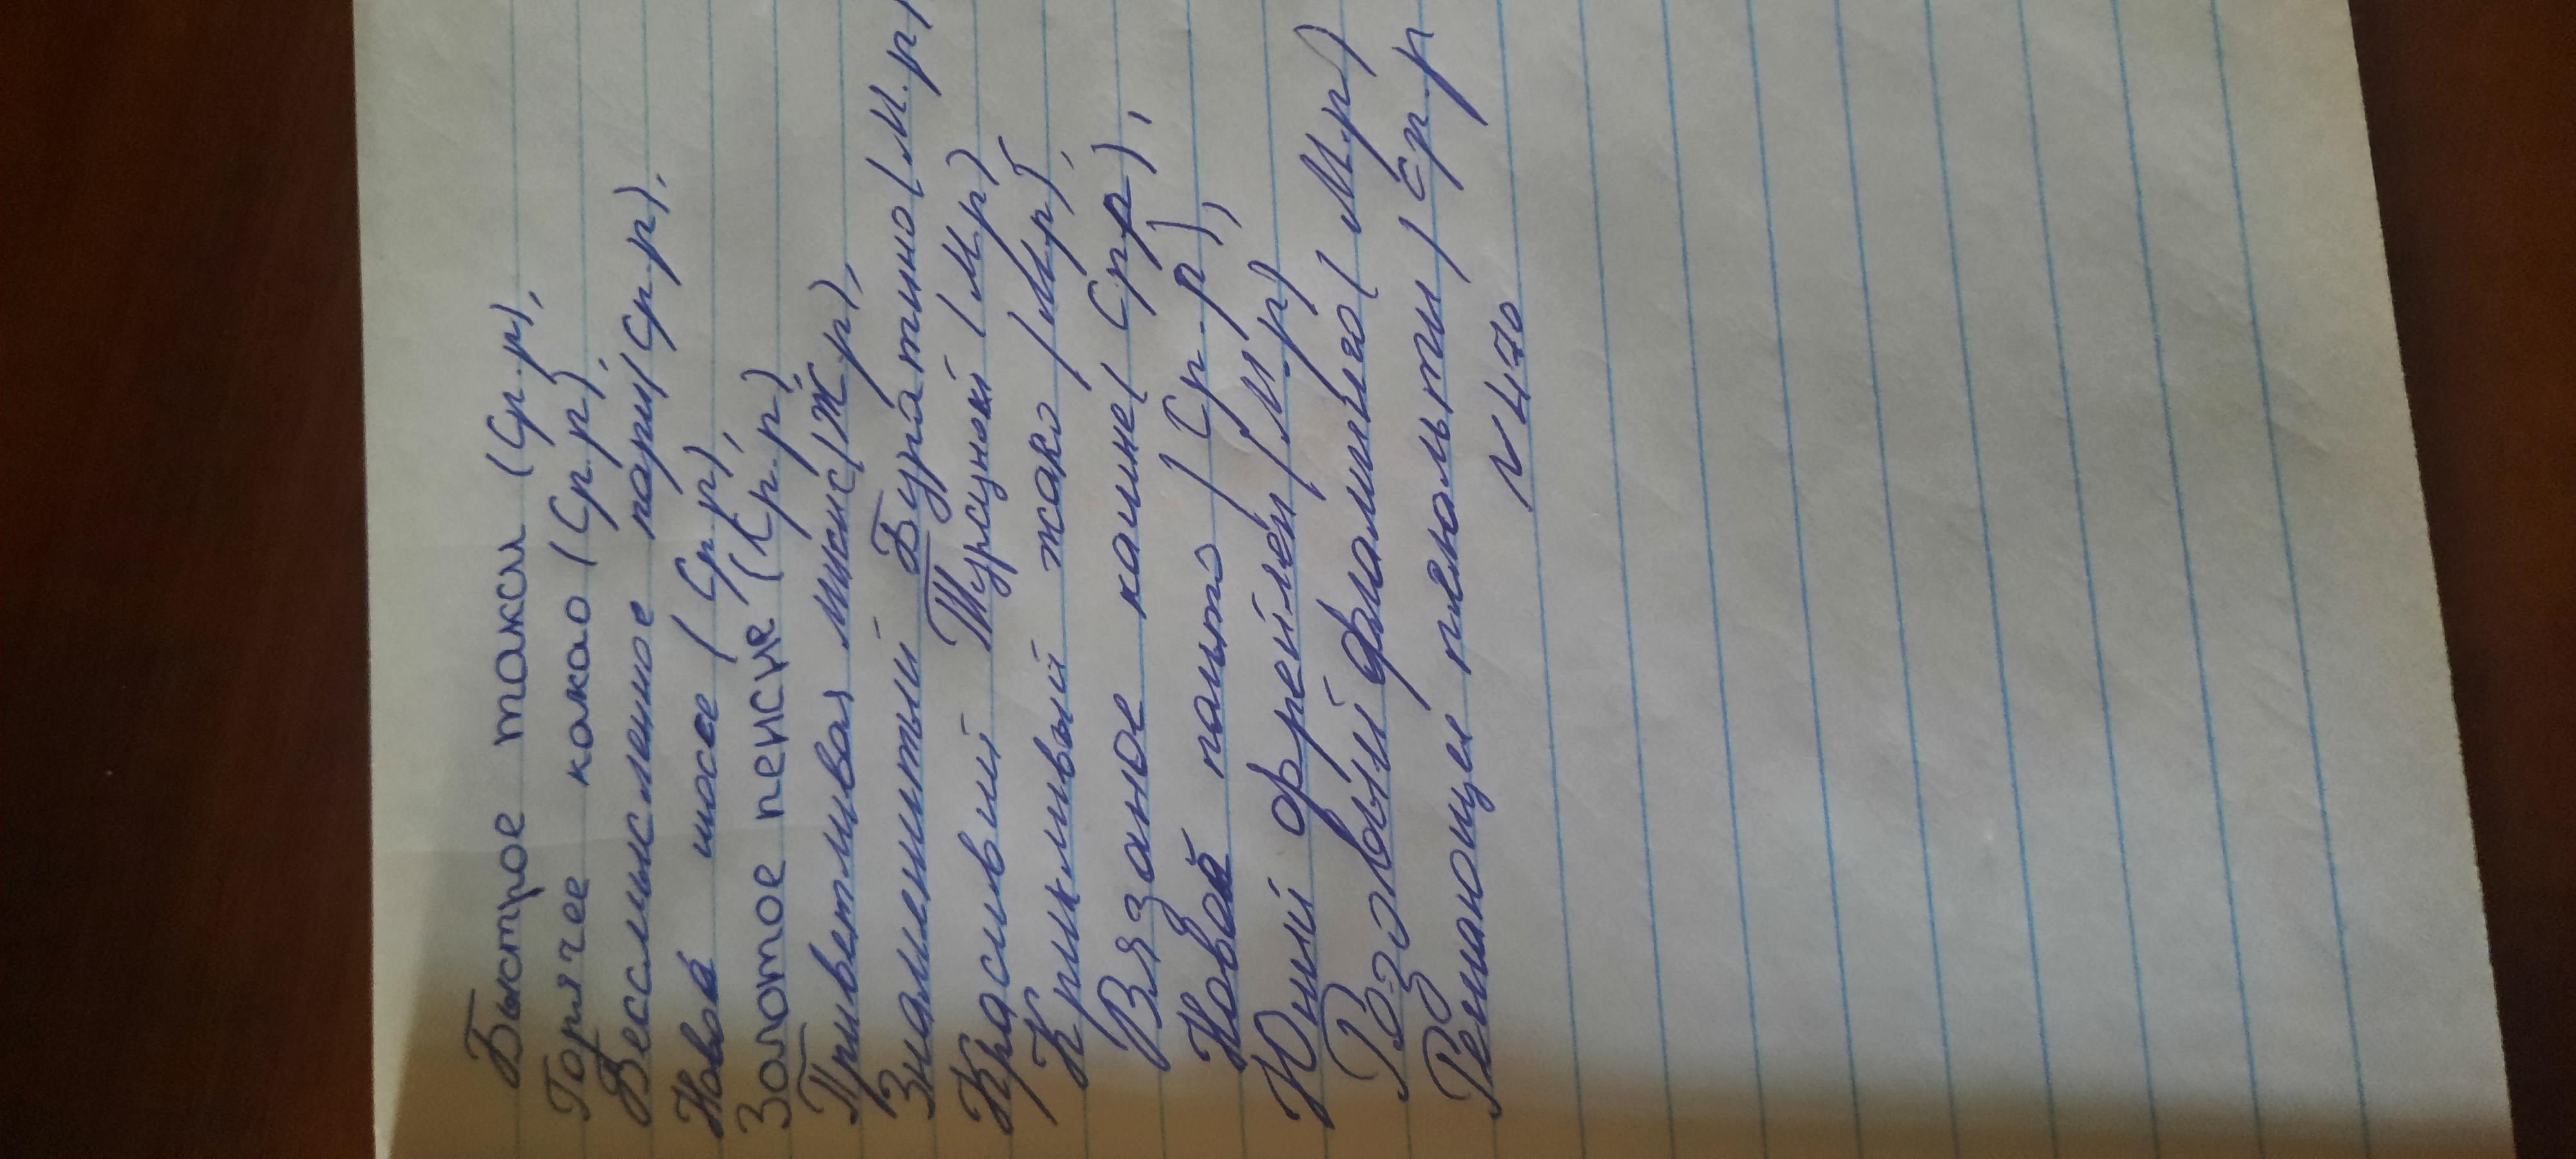 Быстрое такси (Ср.р),
Горячее какао (Ср.р),
Бессмысленное пари (Ср.р),
Новое шоссе (Ср.р),
Золотое пенсне (Ср.р),
Приветливая миссис (Ж.р),
Знаменитый Буратино (М.р)
Красивый (М.р)
Крикливый жако (М.р),
Вязаное кашне (Ср.р),
Новое пальто (Ср.р),
Юный (М.р)
Розовый фламинго (М.р)
Решающее пенальти (Ср.р
N 470